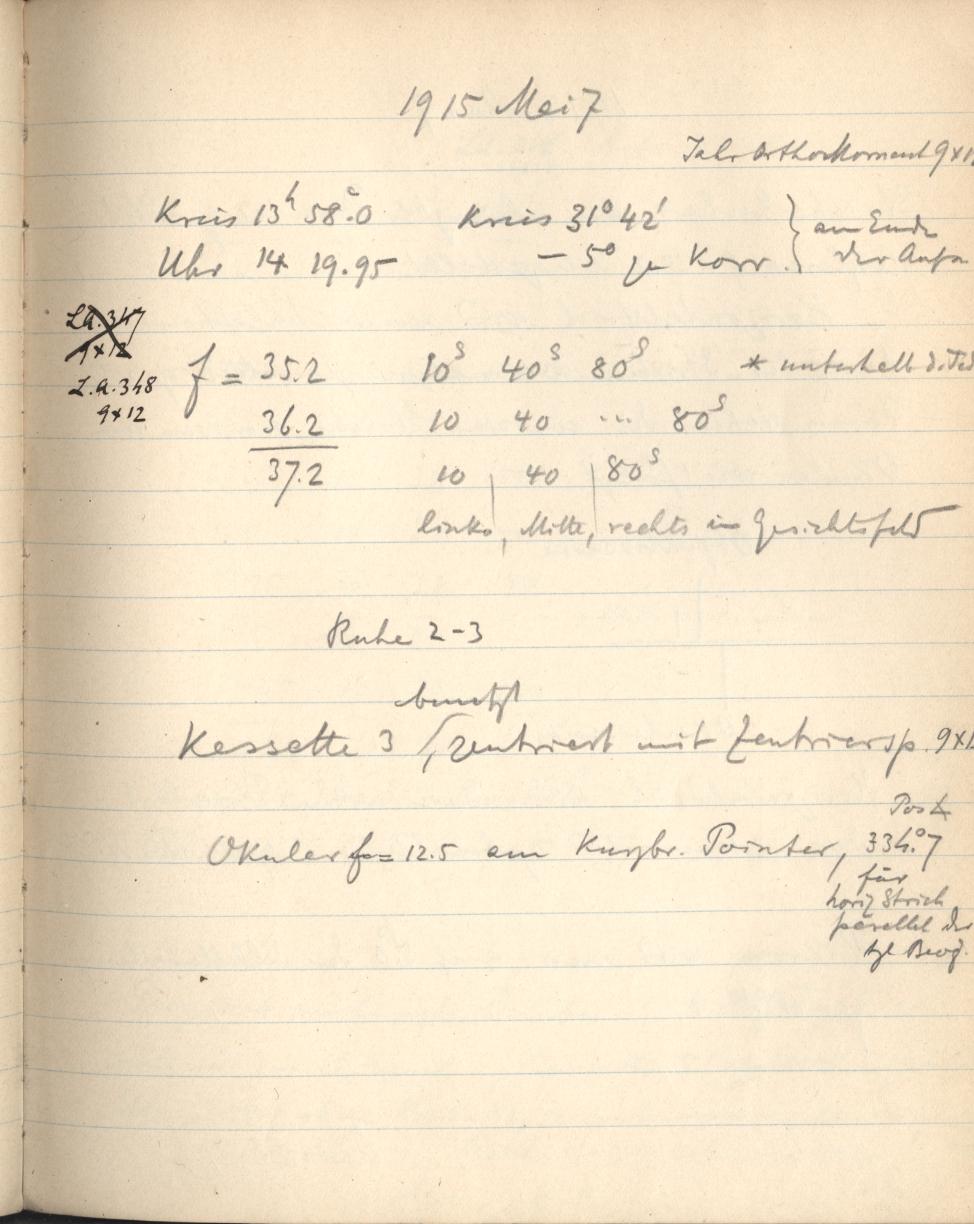 1915 Mai 7
Jahr Orthochromat 9x12
Kreis 13h 58.0 Kreis 31° 42'
Uhr 14 19.95 - 5° zu Korr. } am Ende der Aufn
L.A. 347
9x12
L.A. 348
9x12
f = 35.2 10s 40s 80s * unterhalb d.
36.2 10 40 ... 80s
37.2 10 40 80s
links, Mitte, rechts im Gesichtsfeld
Ruhe 2-3
benutzt
Kassette 3 zentriert mit Zentriersp. 9x12
Pos ∡
Okular f = 12.5 am Kurzbr. Pointer, 334.°7
für
horiz Strich
parallel der
tgl Beweg.